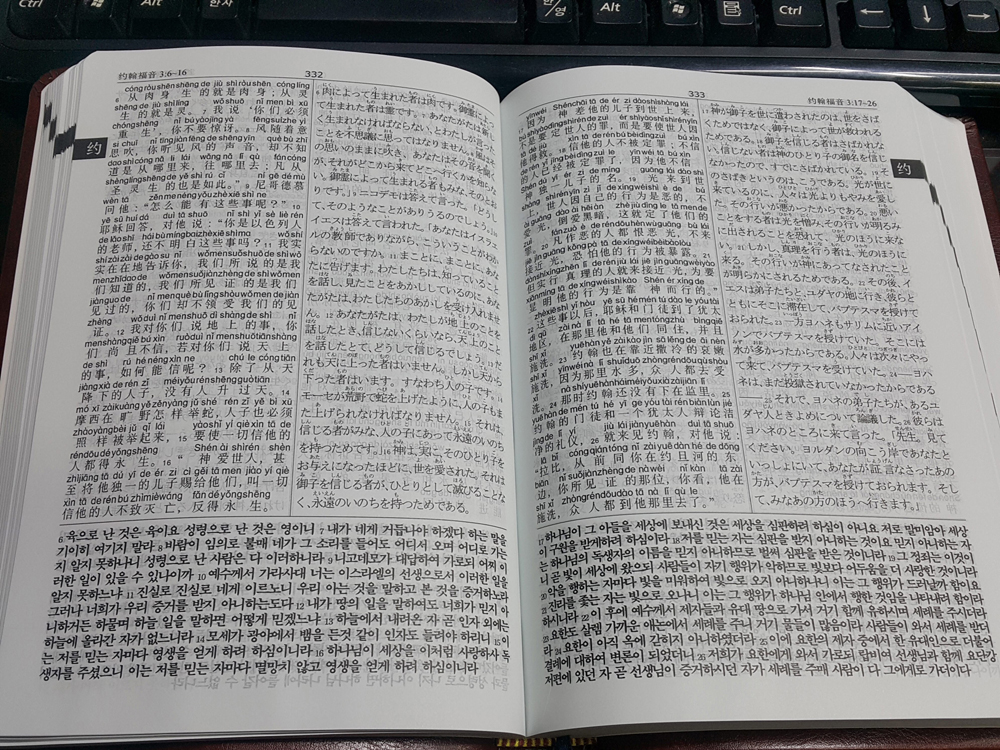 Ctrl
Alt
한/영
Alt
Ctrl
约翰福音 3:6~16
332
约
cóng ròu shēn shēng de jiù shì ròu shēn cóng líng
6 从肉身生的就是肉身；从灵
shēng de jiù shì líng wǒ shuō nǐ men bì xū
生的就是灵。7 我说‘你们必须
chóng shēng nǐ bú yào jīng yà fēng suí zhe yì
重生’，你不要惊讶。8 风随着意
si chuī nǐ tīng jiàn fēng de shēng yīn què bù zhī
思吹，你听见风的声音，却不知
dào shì cóng nǎ li lái wǎng nǎ li qù fán cóng
道是从哪里来，往哪里去；凡从
shèng líng shēng de yě shì rú cǐ ní gē dé mù
圣灵生的也是如此。”9 尼哥德慕
wèn tā zěn me néng yǒu zhè xiē shì ne
问他：“怎么能有这些事呢？”10
yē sū huí dá duì tā shuō nǐ shì yǐ sè liè rén
耶稣回答，对他说：“你是以色列人
de lǎo shī hái bù míng bai zhè xiē shì ma wǒ shí
的老师，还不明白这些事吗？11 我实
shí zài zài de gào su nǐ wǒ men suǒ shuō de shì wǒ
实在在地告诉你，我们所说的是我
men zhī dao de wǒ men suǒ jiàn zhèng de shì wǒ men
们知道的，我们所见证的是我们
jiàn guo de nǐ men què bù lǐng shòu wǒ men de jiàn
见过的，你们却不领受我们的见
zhèng wǒ duì nǐ men shuō dì shàng de shì nǐ
证。12 我对你们说地上的事，你
men shàng qiě bú xìn ruò duì nǐ men shuō tiān shàng
们尚且不信，若对你们说天上
de shì rú hé néng xìn ne chú le cóng tiān
的事，如何能信呢？13 除了从天
jiàng xià de rén zǐ méi yǒu rén shēng guo tiān
降下的人子，没有人升过天。14
mó xī zài kuàng yě zěn yàng jǔ shé rén zǐ yě bì xū
摩西在旷野怎样举蛇，人子也必须
zhào yàng bèi jǔ qǐ lái yào shǐ yí qiè xìn tā de
照样被举起来，15 要使一切信他的
rén dōu dé yǒng shēng Shén ài shì rén shèn
人都得永生。16 “神爱世人，甚
zhì jiāng tā dú yī de ér zi cì gěi tā men jiào yí qiè
至将他独一的儿子赐给他们，叫一切
xìn tā de rén bú zhì miè wáng fǎn dé yǒng shēng
信他的人不致灭亡，反得永生。
6 肉によって生まれた者は肉です。御霊によっ
て生まれた者は霊です。7 あなたがたは新し
く生まれなければならない、とわたしが言った
ことを不思議に思ってはなりません。8 風はそ
の思いのままに吹き、あなたはその音を聞く
が、それがどこから来てどこへ行くかを知らな
い。御霊によって生まれる者もみな、そのとお
りです。」9 ニコデモは答えて言った。「どうし
て、そのようなことがありうるのでしょう。」10
イエスは答えて言われた。「あなたはイスラエ
ルの教師でありながら、こういうことがわか
らないのですか。11 まことに、まことに、あな
たに告げます。わたしたちは、知っていること
を話し、見たことをあかししているのに、あな
たがたは、わたしたちのあかしを受け入れませ
ん。12 あなたがたは、わたしが地上のことを
話したとき、信じないくらいなら、天上のこと
を話したとて、どうして信じるでしょう。13 だ
れも天に上った者はいません。しかし天から
下った者はいます。すなわち人の子です。14
モーセが荒野で蛇を上げたように、人の子もま
た上げられなければなりません。15 それは、
信じる者がみな、人の子にあって永遠のいのち
を持つためです。」16 神は、実に、そのひとり子を
お与えになったほどに、世を愛された。それは
御子を信じる者が、ひとりとして滅びることな
く、永遠のいのちを持つためである。
6 육으로 난 것은 육이요 성령으로 난 것은 영이니 7 내가 네게 거듭나야 하겠다 하는 말을
기이히 여기지 말라 8 바람이 임의로 불매 네가 그 소리를 들어도 어디서 오며 어디로 가는
지 알지 못하나니 성령으로 난 사람은 다 이러하니라 9 니고데모가 대답하여 가로되 어찌 이
러한 일이 있을 수 있나이까 10 예수께서 가라사대 너는 이스라엘의 선생으로서 이러한 일을
알지 못하느냐 11 진실로 진실로 네게 이르노니 우리 아는 것을 말하고 본 것을 증거하노라
그러나 너희가 우리 증거를 받지 아니하는도다 12 내가 땅의 일을 말하여도 너희가 믿지 아
니하거든 하물며 하늘 일을 말하면 어떻게 믿겠느냐 13 하늘에서 내려온 자 곧 인자 외에는
하늘에 올라간 자가 없느니라 14 모세가 광야에서 뱀을 든것 같이 인자도 들려야 하리니 15 이
는 저를 믿는 자마다 영생을 얻게 하려 하심이니라 16 하나님이 세상을 이처럼 사랑하사 독
생자를 주셨으니 이는 저를 믿는 자마다 멸망치 않고 영생을 얻게 하려 하심이니라
333
约翰福音 3:17-26
约
yīn wèi Shén chāi tā de ér zi dào shì shàng lái
17 因为神差他的儿子到世上来，
bú shì yào dìng shì rén de zuì ér shì yào shǐ shì rén yīn
不是要定世人的罪，而是要使世人因
他得救。18 信他的人不被定罪；不信
的人已经被定罪了，因为他不信
神独一儿子的名。19 光来到世
上，世人因自己的行为是恶的，不
爱光，倒爱黑暗，这就定了他们的
罪。20 凡作恶的人都恨恶光，不来
接近光，恐怕他的行为被暴露。21
但实行真理的人就来接近光，为要
显明他的行为是靠神而行的。”
22 这些事以后，耶稣和门徒到了犹太
地区，在那里他和他们同住，并且
施洗。23 约翰也在靠近撒冷的哀嫩
施洗，因为那里水多，众人都去受
洗。24 那时约翰还没有下在监里。25
约翰的门徒和一个犹太人辩论洁
净的礼仪，26 就来见约翰，对他说：
“拉比，从前同你在约旦河的东
边，你所见证的那位，你看，他在
施洗，众人都到他那里去了。”
17 神が御子を世に遣わされたのは、世をさば
くためではなく、御子によって世が救われる
ためである。18 御子を信じる者はさばかれな
い。信じない者は神のひとり子の御名を信じ
なかったので、すでにさばかれている。19 そ
のさばきというのは、こうである。光が世に
来ているのに、人々は光よりもやみを愛し
た。その行いが悪かったからである。20 悪い
ことをする者は光を憎み、その行いが明るみ
に出されることを恐れて、光のほうに来な
い。21 しかし、真理を行う者は、光のほうに
来る。その行いが神にあってなされたこと
が明らかにされるためである。22 その後、イ
エスは弟子たちと、ユダヤの地に行き、彼らと
ともにそこに滞在して、バプテスマを授けて
おられた。23 一方ヨハネもサリムに近いアイ
ノンでバプテスマを授けていた。そこには
水が多かったからである。人々は次々にやっ
て来て、バプテスマを受けていた。24 ──ヨハ
ネは、まだ投獄されていなかったからである
──25 それで、ヨハネの弟子たちが、あるユ
ダヤ人ときよめについて論議した。26 彼らは
ヨハネのところに来て言った。「先生。見て
ください。ヨルダンの向こう岸であなたと
いっしょにいて、あなたが証言なさったあの
方が、バプテスマを授けておられます。そし
て、みなあの方のほうへ行きます。」
17 하나님이 그 아들을 세상에 보내신 것은 세상을 심판하려 하심이 아니요 저로 말미암아 세상
이 구원을 받게하려 하심이라 18 저를 믿는 자는 심판을 받지 아니하는 것이요 믿지 아니하는 자
는 하나님의 독생자의 이름을 믿지 아니하므로 벌써 심판을 받은 것이니라 19 그 정죄는 이것이
니 곧 빛이 세상에 왔으되 사람들이 자기 행위가 악하므로 빛보다 어두움을 더 사랑한 것이니라
20 악을 행하는 자마다 빛을 미워하여 빛으로 오지 아니하나니 이는 그 행위가 드러날까 함이요 21
진리를 좇는 자는 빛으로 오나니 이는 그 행위가 하나님 안에서 행한 것임을 나타내려 함이라
하시니라 22 이 후에 예수께서 제자들과 유대 땅으로 가서 거기 함께 유하시며 세례를 주시더라
23 요한도 살렘 가까운 애논에서 세례를 주니 거기 물들이 많음이라 사람들이 와서 세례를 받더
라 24 요한이 아직 옥에 갇히지 아니하였더라 25 이에 요한의 제자 중에서 한 유대인으로 더불어
결례에 대하여 변론이 되었더니 26 저희가 요한에게 와서 가로되 랍비여 선생님과 함께 요단강
저편에 있던 자 곧 선생님이 증거하시던 자가 세례를 주매 사람이 다 그에게로 가더이다